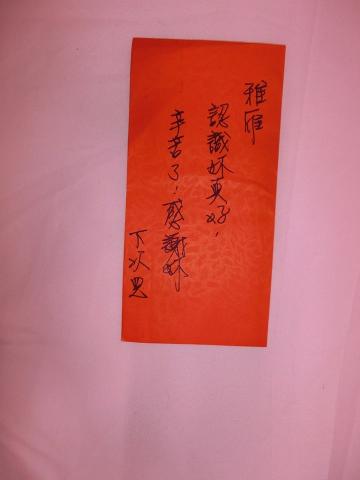 雅雁
認識妳真好，
辛苦了！感謝妳
下次見